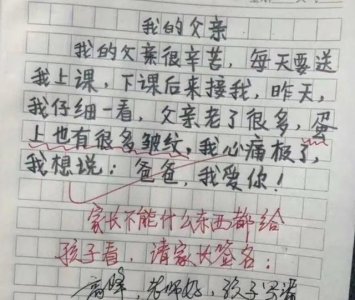 我的父亲
我的父亲很辛苦，每天要送
我上课，下课后来接我，昨天，
我仔细一看，父亲老了很多，蛋
上也有很多皱纹，我心痛极了，
我想说：爸爸，我爱你！
家长不能什么东西都给
孩子看，请家长签名：
老师好，孩子写错